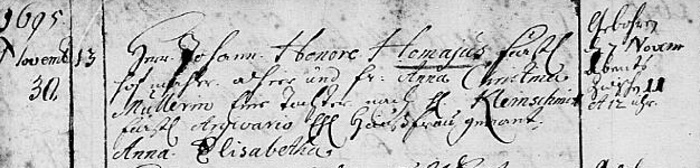 1695
Novemb 13
30
Herr Johann Honore Thomasius fürstl
hof alhier und fr: Anna Christina
Müllerin eine Tochter nach H Klemschmit
fürstl Archivario Haußfrau genant
Anna Elisabetha
Gebohren
27 Novem
Abents
zwische 11
et 12 uhr